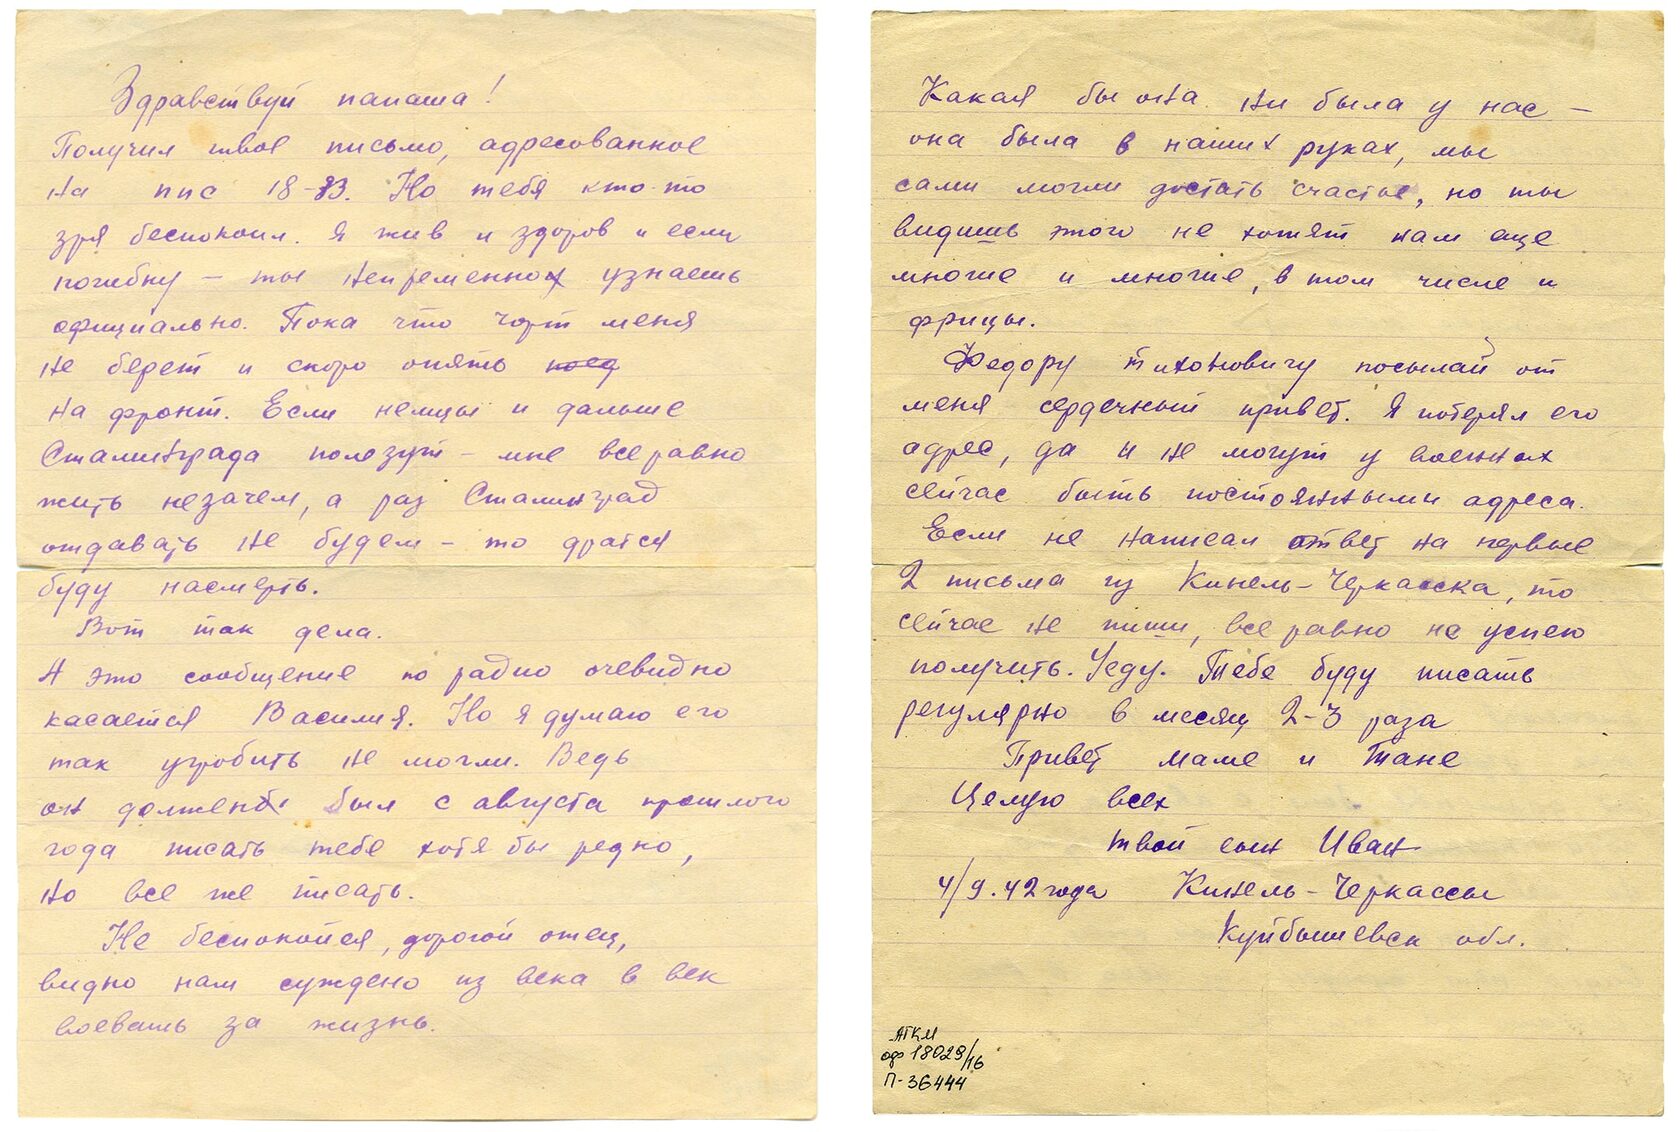 Здравствуй папаша!
Получил твое письмо, адресованное
на ппс 18-83. Но тебя кто-то
зря беспокоил. Я жив и здоров и если
погибну – ты непременно узнаешь
официально. Пока что чорт меня
не берет и скоро опять поед
на фронт. Если немцы и дальше
Сталинграда полезут – мне все равно
жить незачем, а раз Сталинград
отдавать не будем – то драться
буду насмерть.
Вот так дела.
А это сообщение по радио очевидно
касается Василия. Но я думаю его
так угробить не могли. Ведь
он должен был с августа прошлого
года писать тебе хотя бы редко,
но все же писать.
Не беспокойся, дорогой отец,
видно нам суждено из века в век
воевать за жизнь.
Какая бы она ни была у нас –
она была в наших руках, мы
сами могли достать счастье, но ты
видишь этого не хотят нам еще
многие и многие, в том числе и
фрицы.
Федору Тихоновичу посылай от
меня сердечный привет. Я потерял его
адрес, да и не могут у военных
сейчас быть постоянными адреса.
Если не написал ответ на первые
2 письма из Кинель-Черкасска, то
сейчас не пиши, все равно не успею
получить. Уеду. Тебе буду писать
регулярно в месяц 2-3 раза
Привет маме и Тане
Целую всех
твой сын Иван
4/9.42 года Кинель-Черкассы
Куйбышевск обл.
АГКМ
оф 18029/16
П-36444